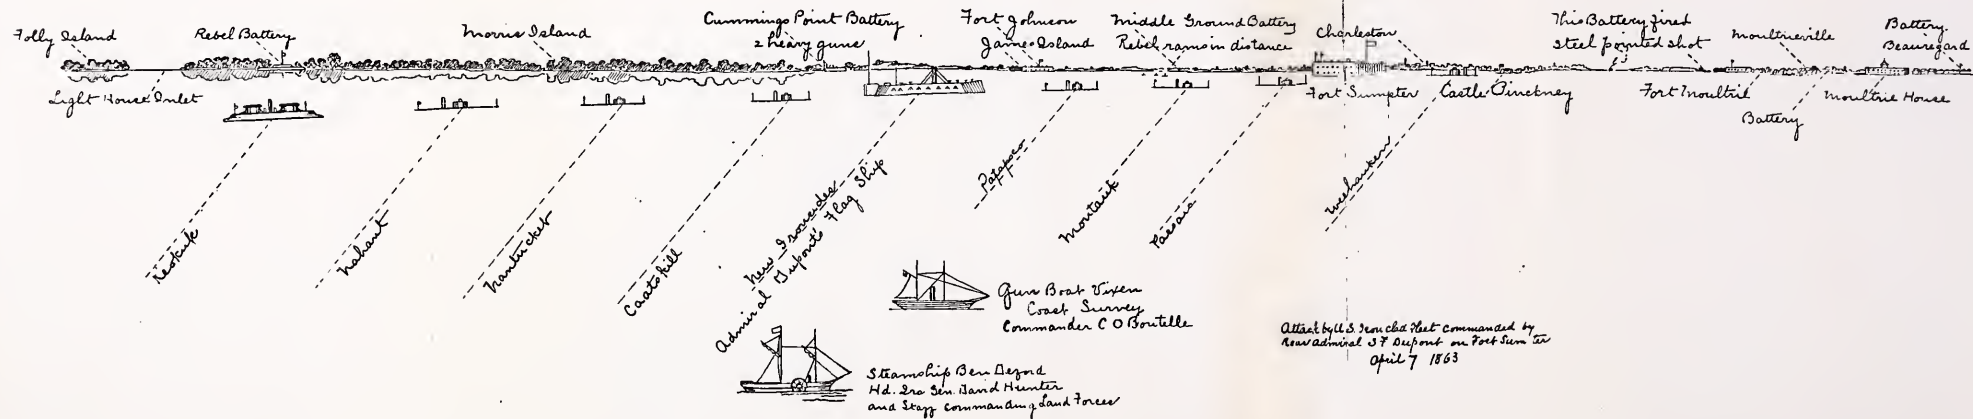 Folly Island
Rebel Battery
Morris Island
Cummings Point Battery
2 heavy guns
Fort Johnson
James Island
Middle Ground Battery
Rebel rams in distance
Charleston
This Battery fired
Steel pointed shot
Moultrieville
Battery
Beauregard
Light House Inlet
Fort Sumpter
Castle Pinckney
Fort Moultrie
Battery
Moultrie House
Keokuk
Nahant
Nantucket
Caatskill
New Ironsides
Admiral Dupont's Flag Ship
Patapsco
Montauk
Passaic
Weehawken
Gun Boat Vixen
Coast Survey
Commander C O Boutelle
Steamship Ben Deford
Hd. Qrs Gen. David Hunter
and Staff commanding Land Forces
Attack by U.S. Iron clad Fleet commanded by
Rear Admiral S F Dupont on Fort Sumter
April 7 1863